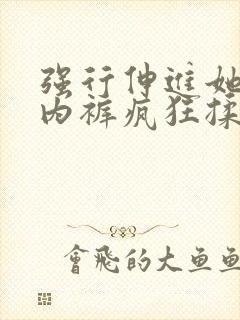 强行伸进她
内裤疯狂揉
會飛的大鱼鱼